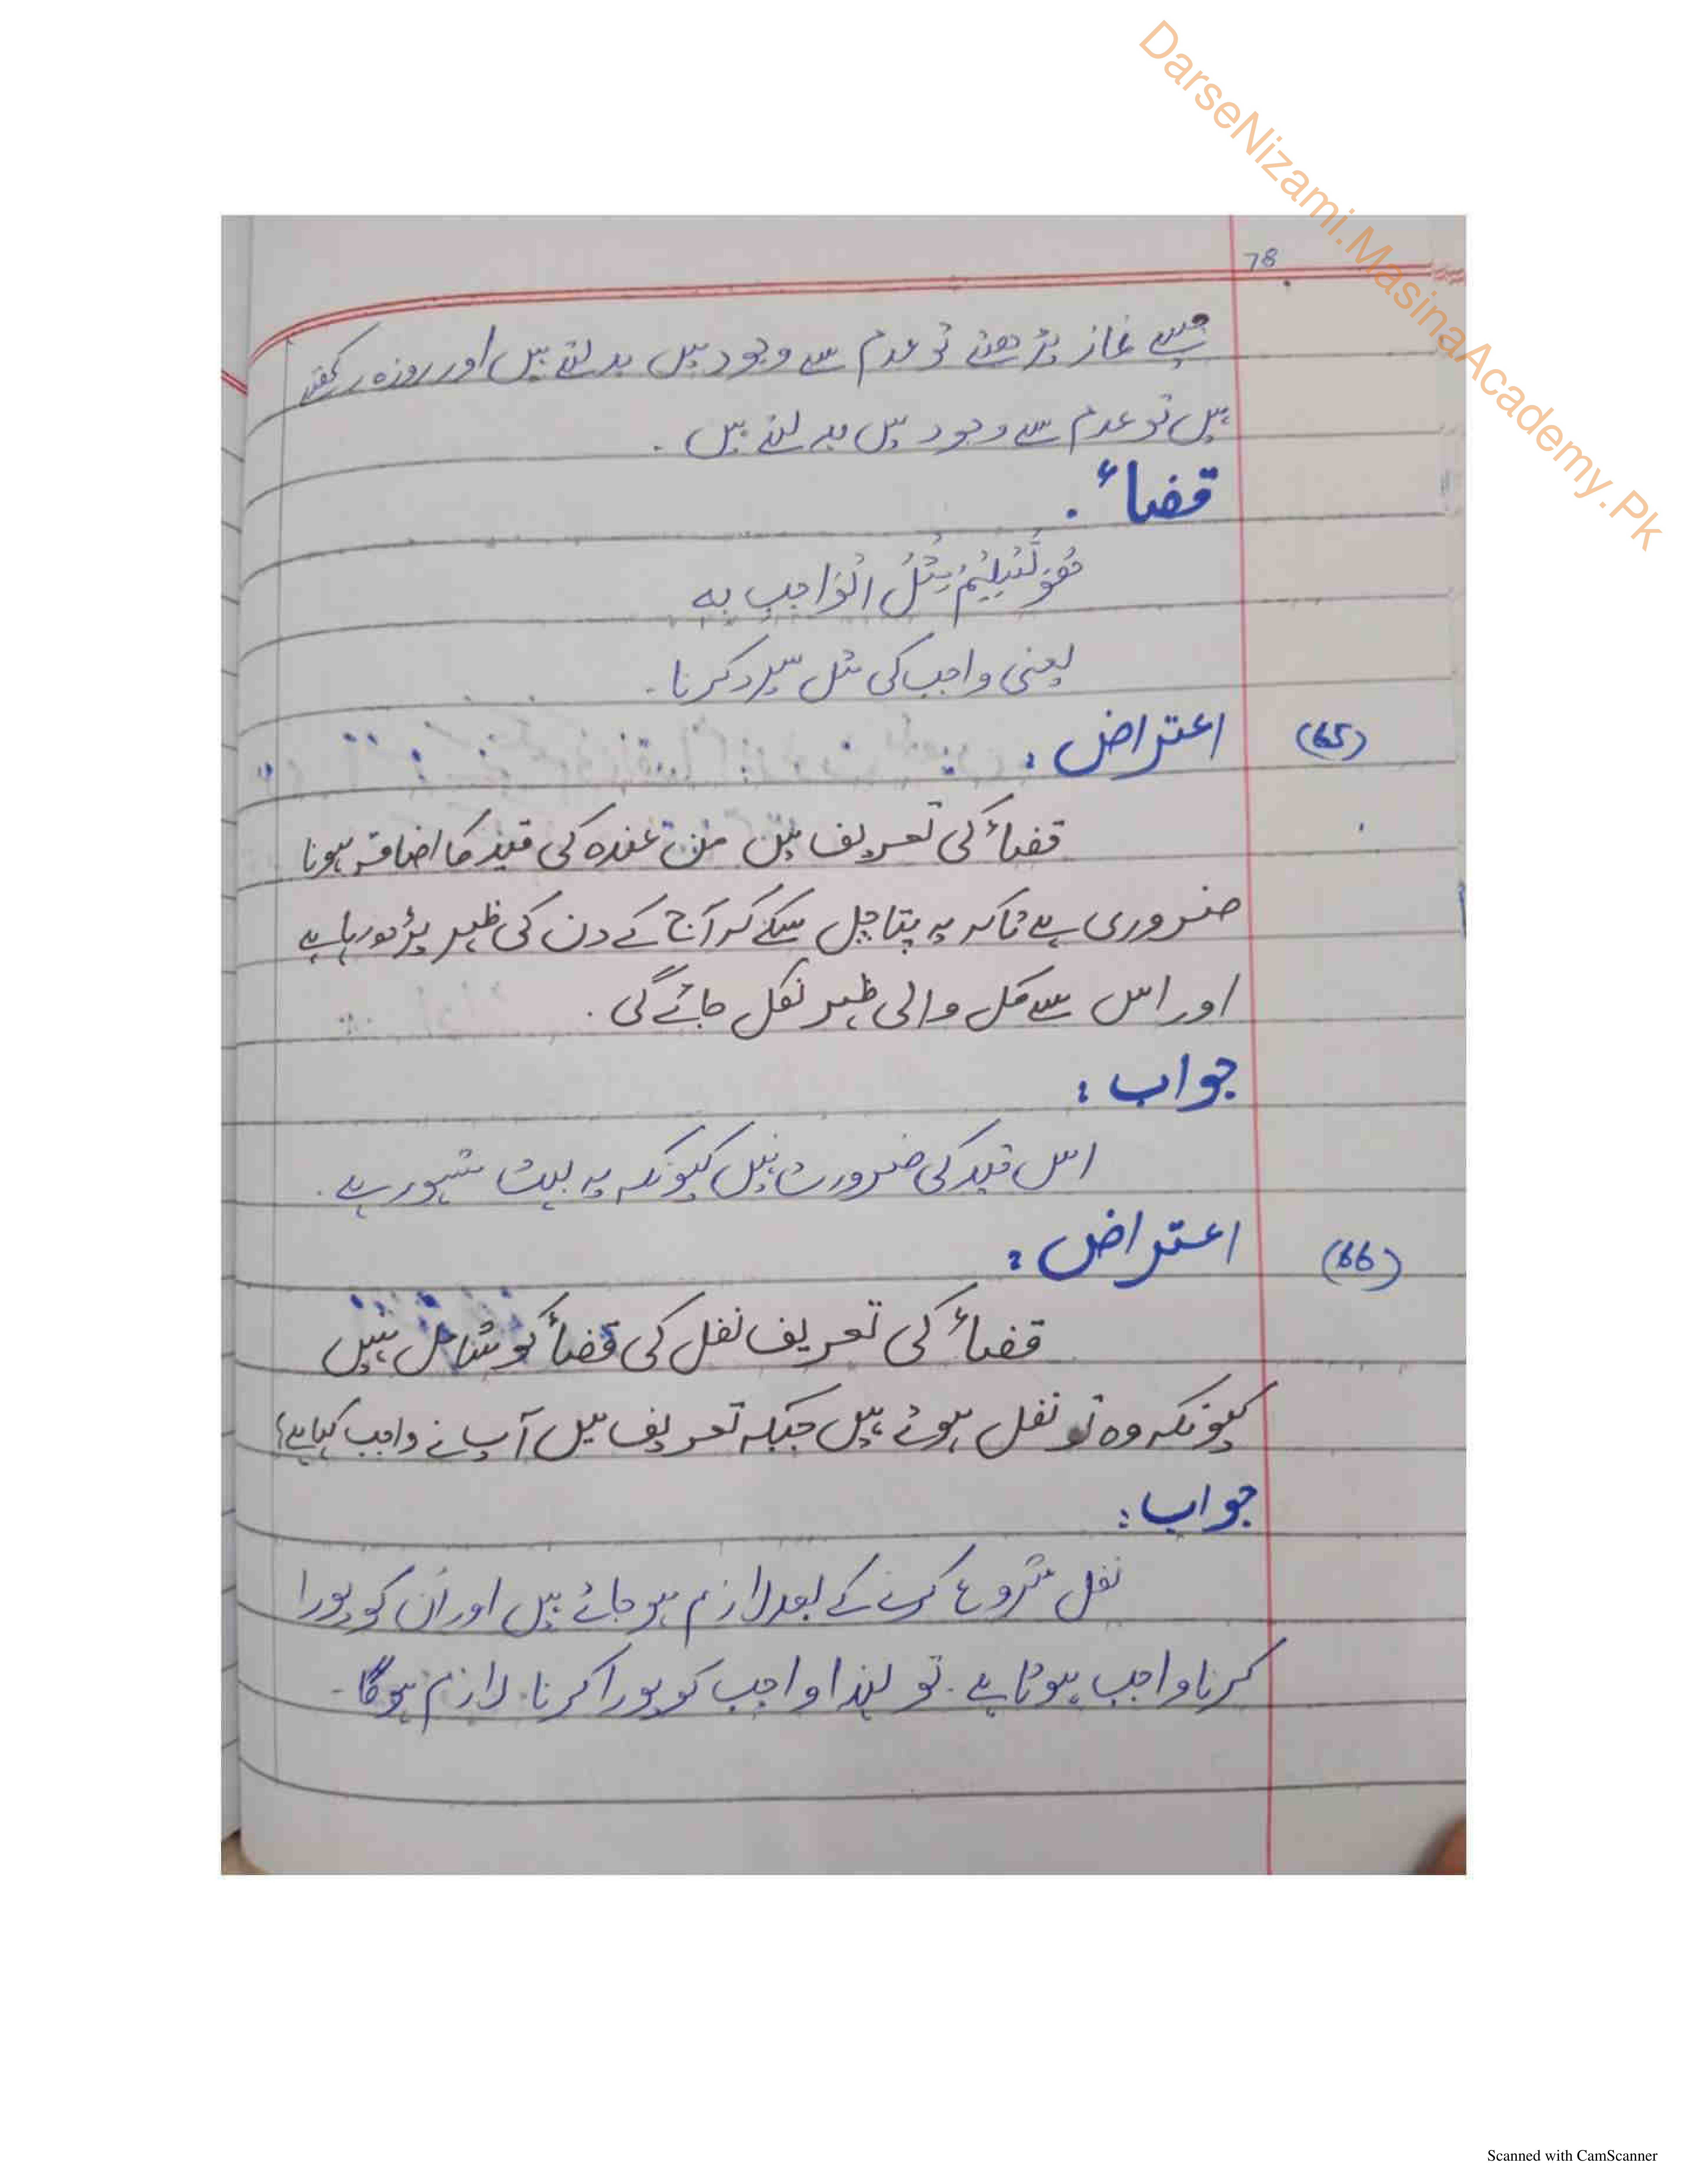 DarseNizami.MasinaAcademy.Pk
78
جیسے نماز پڑھتے تو عدم سے وجود میں بدلتے ہیں اور روزہ رکھتے
ہیں تو عدم سے وجود میں بدلتے ہیں ۔
قضاءٔ .
ھُوَ تَسْلِیْمُ مِثْلُ الْوَاجِبِ بِهٖ
یعنی واجب کی مثل سپرد کرنا ۔
(65) اعتراض :
قضاءٔ کی تعریف میں من عندہ کی قید کا اضافہ ہونا
ضروری ہے تاکہ یہ پتا چل سکے کہ آج کے دن کی ظہر پڑھ رہا ہے
اور اس سے کل والی ظہر نکل جائے گی .
جواب :
اس قید کی ضرورت نہیں کیونکہ یہ بہت مشہور ہے .
(66) اعتراض :
قضاءٔ کی تعریف نفل کی قضاءٔ کو شامل نہیں
کیونکہ وہ تو نفل ہوتے ہیں جبکہ تعریف میں آپ نے واجب کہا ہے؟
جواب :
نفل شروع کرنے کے بعد لازم ہو جاتے ہیں اور اُن کو پورا
کرنا واجب ہوتا ہے ۔ تو لہٰذا واجب کو پورا کرنا لازم ہوگا ۔
Scanned with CamScanner